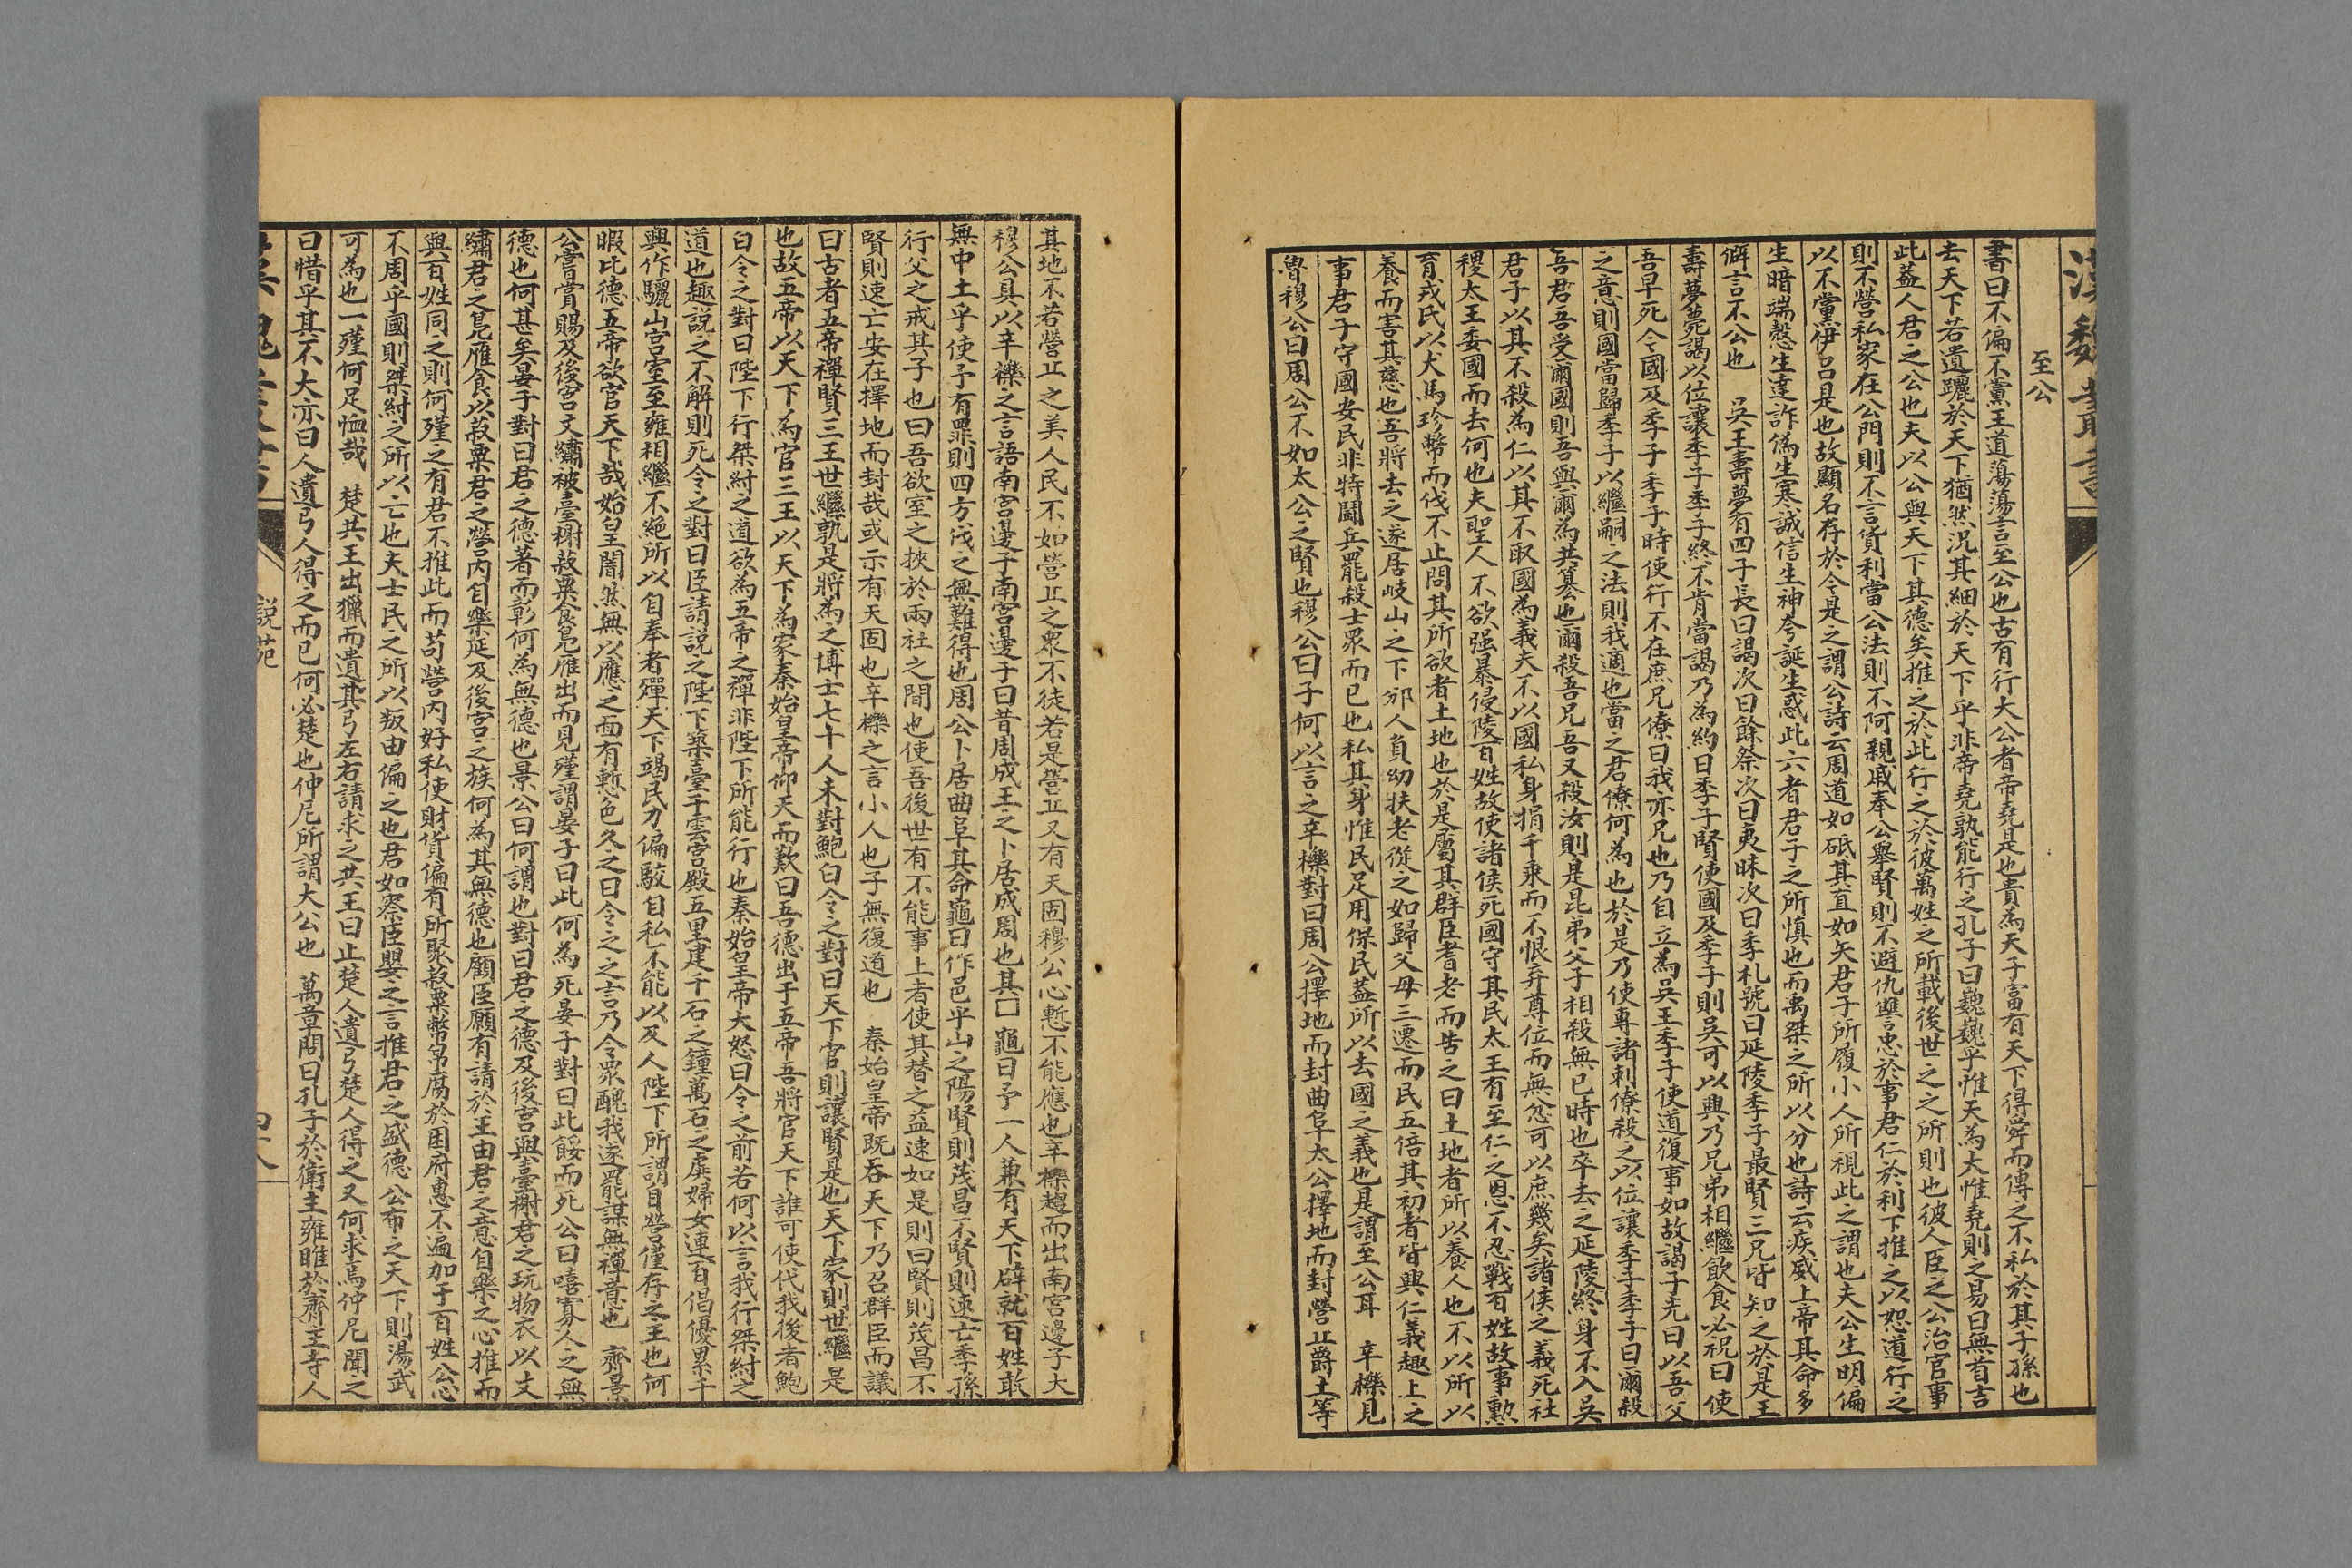 漢魏叢書
至公
書曰不偏不黨王道蕩蕩言至公也古有行大公者帝堯是也貴為天子富有天下得舜而傳之不私於其子孫也
去天下若遺躧於天下猶然況其細於天下乎非帝堯孰能行之孔子曰巍巍乎惟天為大惟堯則之易曰無首吉
此蓋人君之公也夫以公與天下其德矣推之於此行之於彼萬姓之所載後世之之所則也彼人臣之公治官事
則不營私家在公門則不言貨利當公法則不阿親戚奉公舉賢則不避仇讐忠於事君仁於利下推之以恕道行之
以不黨伊呂是也故顯名存於今是之謂公詩云周道如砥其直如矢君子所履小人所視此之謂也夫公生明偏
生暗端愨生達詐偽生塞誠信生神夸誕生惑此六者君子之所慎也而禹桀之所以分也詩云疾威上帝其命多
僻言不公也　吳王壽夢有四子長曰謁次曰餘祭次曰夷昧次曰季札號曰延陵季子最賢三兄皆知之於是王
壽夢薨謁以位讓季子季子終不肯當謁乃為約曰季子賢使國及季子則吳可以興乃兄弟相繼飲食必祝曰使
吾早死令國及季子季子時使行不在庶兄僚曰我亦兄也乃自立為吳王季子使道復事如故謁子光曰以吾父
之意則國當歸季子以繼嗣之法則我適也當之君僚何為也於是乃使專諸刺僚殺之以位讓季子季子曰爾殺
吾君吾受爾國則吾與爾為共篡也爾殺吾兄吾又殺汝則是昆弟父子相殺無已時也卒去之延陵終身不入吳
君子以其不殺為仁以其不取國為義夫不以國私身捐千乘而不恨弃尊位而無忿可以庶幾矣諸侯之義死社
稷太王委國而去何也夫聖人不欲强暴侵陵百姓故使諸侯死國守其民太王有至仁之恩不忍戰百姓故事勳
育戎氏以犬馬珍幣而伐不止問其所欲者土地也於是屬其群臣耆老而告之曰土地者所以養人也不以所以
養而害其慈也吾將去之遂居岐山之下邠人負幼扶老從之如歸父母三遷而民五倍其初者皆興仁義趣上之
事君子守國安民非特鬬兵罷殺士眾而已也私其身惟民足用保民蓋所以去國之義也是謂至公耳　辛櫟見
魯穆公曰周公不如太公之賢也穆公曰子何以言之辛櫟對曰周公擇地而封曲阜太公擇地而封營丘爵土等
其地不若營丘之美人民不如營丘之眾不徒若是營丘又有天固穆公心慙不能應也辛櫟趨而出南宮邊子大
穆公具以辛櫟之言語南宮邊子南宮邊子曰昔周成王之卜居成周也其□龜曰予一人兼有天下辟就百姓敢
無中土乎使予有罪則四方伐之無難得也周公卜居曲阜其命龜曰作邑乎山之陽賢則茂昌不賢則速亡季孫
行父之戒其子也曰吾欲室之挾於兩社之間也使吾後世有不能事上者使其替之益速如是則曰賢則茂昌不
賢則速亡安在擇地而封哉或示有天固也辛櫟之言小人也子無復道也　秦始皇帝既吞天下乃召群臣而議
曰古者五帝禪賢三王世繼孰是將為之博士七十人未對鮑白令之對曰天下官則讓賢是也天下家則世繼是
也故五帝以天下為官三王以天下為家秦始皇帝仰天而歎曰吾德出于五帝吾將官天下誰可使代我後者鮑
白令之對曰陛下行桀紂之道欲為五帝之禪非陛下所能行也秦始皇帝大怒曰令之前若何以言我行桀紂之
道也趣説之不解則死令之對曰臣請説之陛下築臺干雲宮殿五里建千石之鐘萬石之虡婦女連百倡優累千
興作驪山宮室至雍相繼不絕所以自奉者殫天下竭民力偏駮自私不能以及人陛下所謂自營僅存之主也何
暇比德五帝欲官天下哉始皇闇然無以應之面有慙色久之曰令之之言乃令眾醜我遂罷謀無禪意也　齊景
公嘗賞賜及後宮文繡被臺榭菽粟食鳧雁出而見殣謂晏子曰此何為死晏子對曰此餒而死公曰嘻寡人之無
德也何甚矣晏子對曰君之德著而彰何為無德也景公曰何謂也對曰君之德及後宮與臺榭君之玩物衣以文
繡君之鳧雁食以菽粟君之營內自樂延及後宮之族何為其無德也顧臣願有請於王由君之意自樂之心推而
與百姓同之則何殣之有君不推此而苟營內好私使財貨偏有所聚菽粟幣帛腐於囷府惠不遍加于百姓公心
不周乎國則桀紂之所以亡也夫士民之所以叛由偏之也君如察臣嬰之言推君之盛德公布之天下則湯武
可為也一殣何足恤哉　楚共王出獵而遺其弓左右請求之共王曰止楚人遺弓楚人得之又何求焉仲尼聞之
曰惜乎其不大亦曰人遺弓人得之而已何必楚也仲尼所謂大公也　萬章問曰孔子於衛主雍睢於齊主寺人
漢魏叢書
説苑
四八